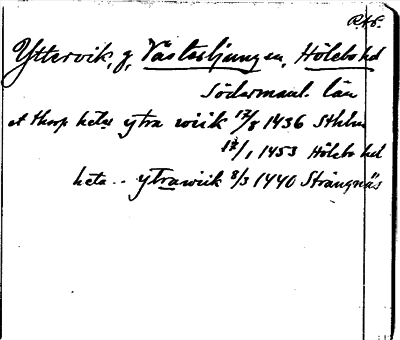 RAP.
Yttervik, g, Västerljung sn, Hölebo hd
Södermanl. län
et thorp hetr ytra wiik 17/8 1436 Sthlm
1453 Hölebo hd
heta .. ytrawiik 8/3 1440 Strängnäs